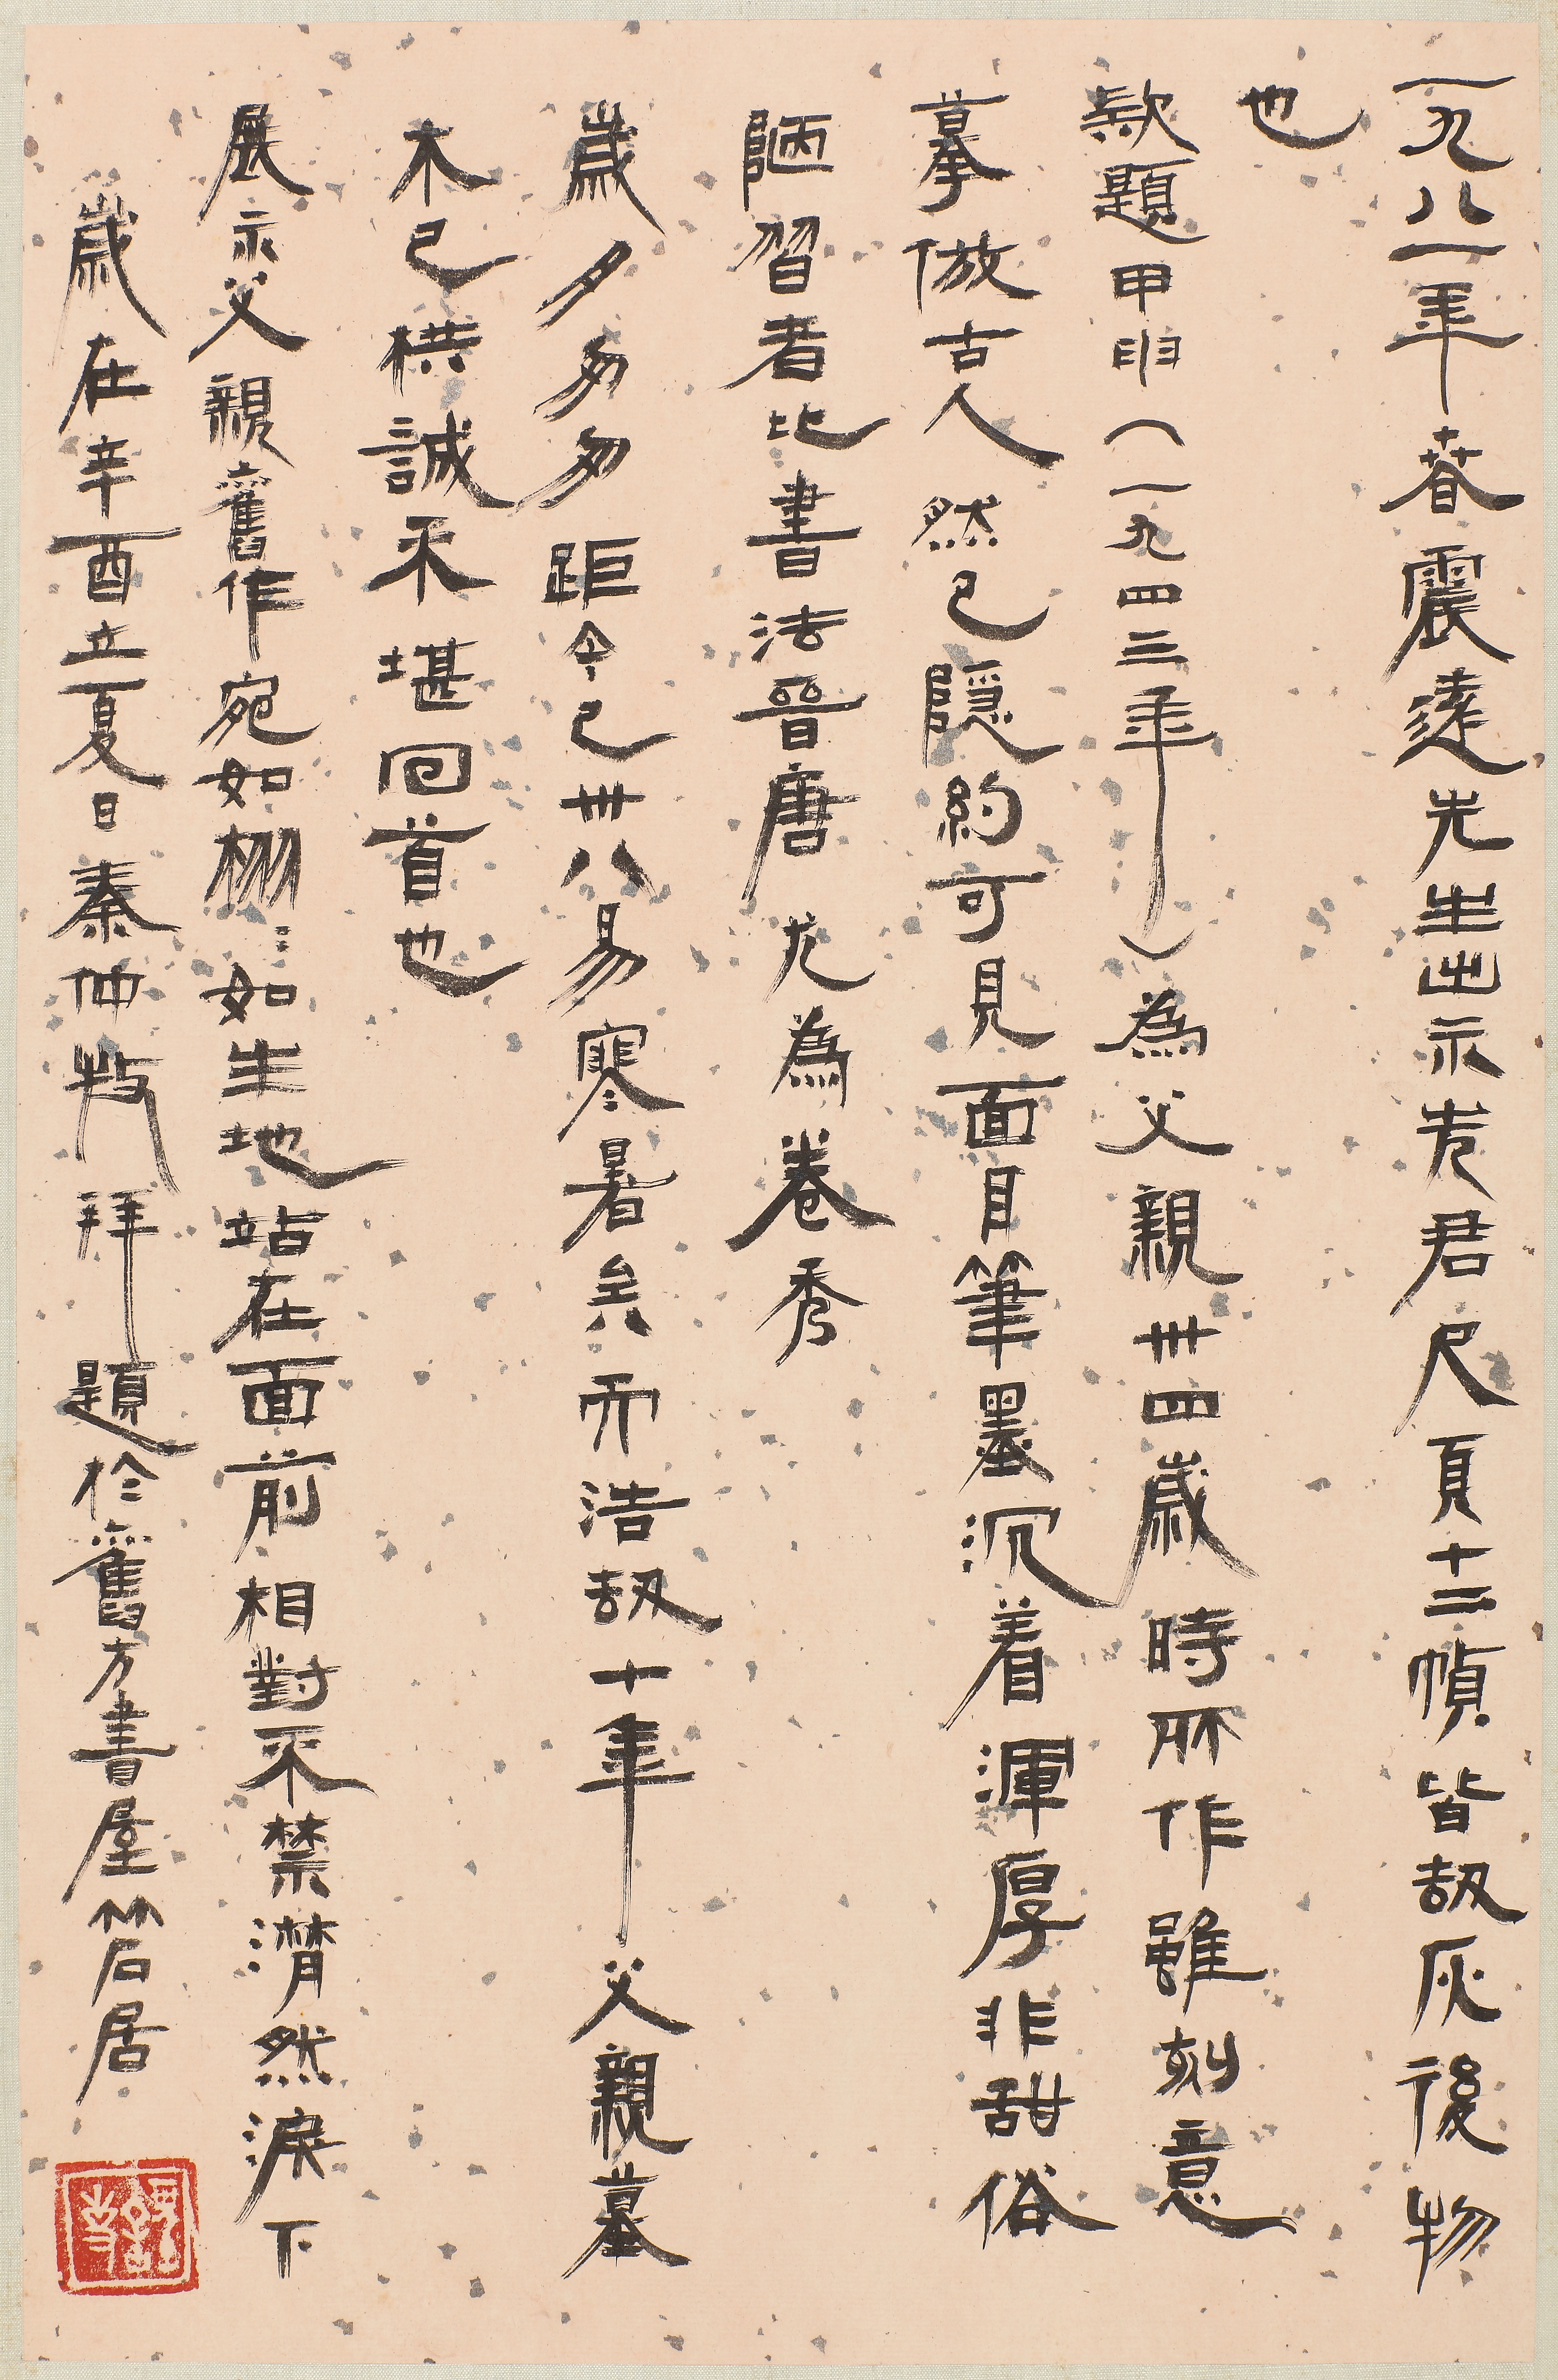 一九八一年春震達先生出示先君尺頁十二幀皆劫灰後物
也
款題甲申（一九四三年）為父親卅四歲時所作雖刻意
摹倣古人然已隱約可見面目筆墨沉着渾厚非甜俗
陋習者比書法晉唐尤為卷秀
歲夕匆匆距今已卅八易寒暑矣而浩劫十年父親墓
木已栱誠不堪回首也
展示父親舊作宛如栩〻如生地站在面前相對不禁潸然淚下
歲在辛酉立夏日秦仲 拜題於舊方書屋 居